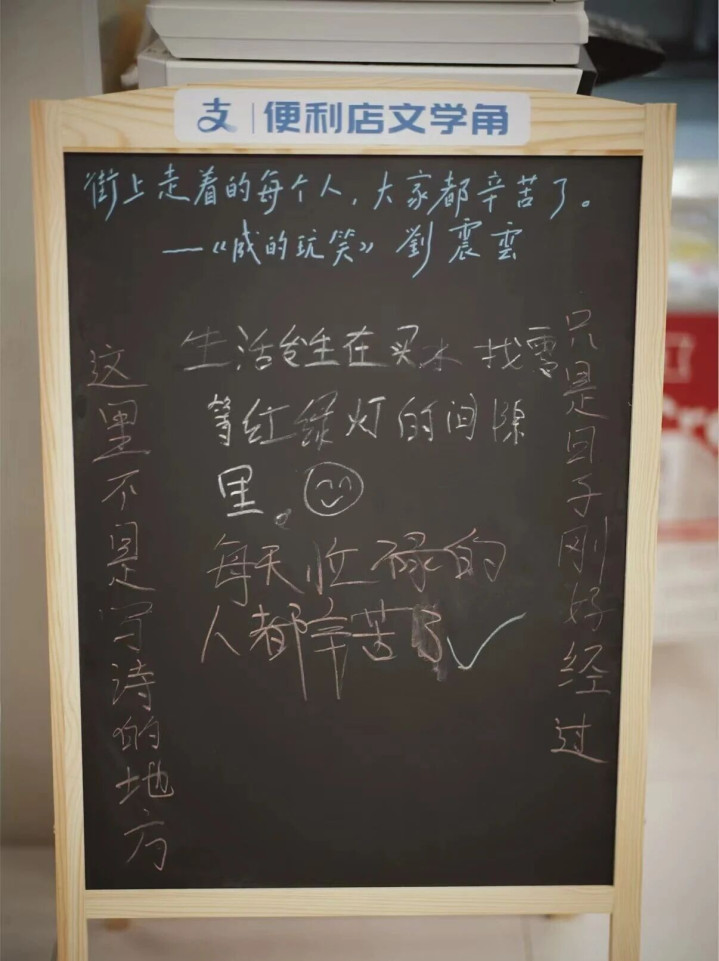 支 | 便利店文学角
街上走着的每个人,大家都辛苦了。
—《咸的玩笑》 劉震雲
生活发生在买水 找零
等红绿灯的间隙
里。
每天忙碌的
人都辛苦了
这里不是写诗的地方
只是日子刚好经过